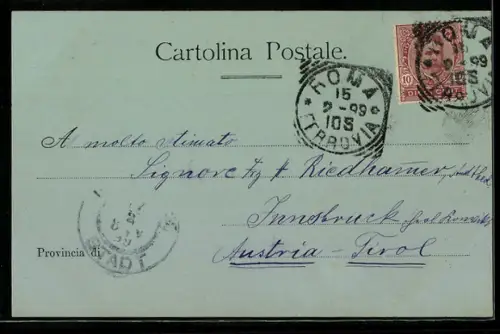 Cartolina Postale.
* ROMA *
15
2-99
10S
FERROVIA
ROMA
15
2-99
10S
10
A molto stimato
Signore Riedhamer,
Innsbruck
Provincia di
Austria-Tirol
STADT